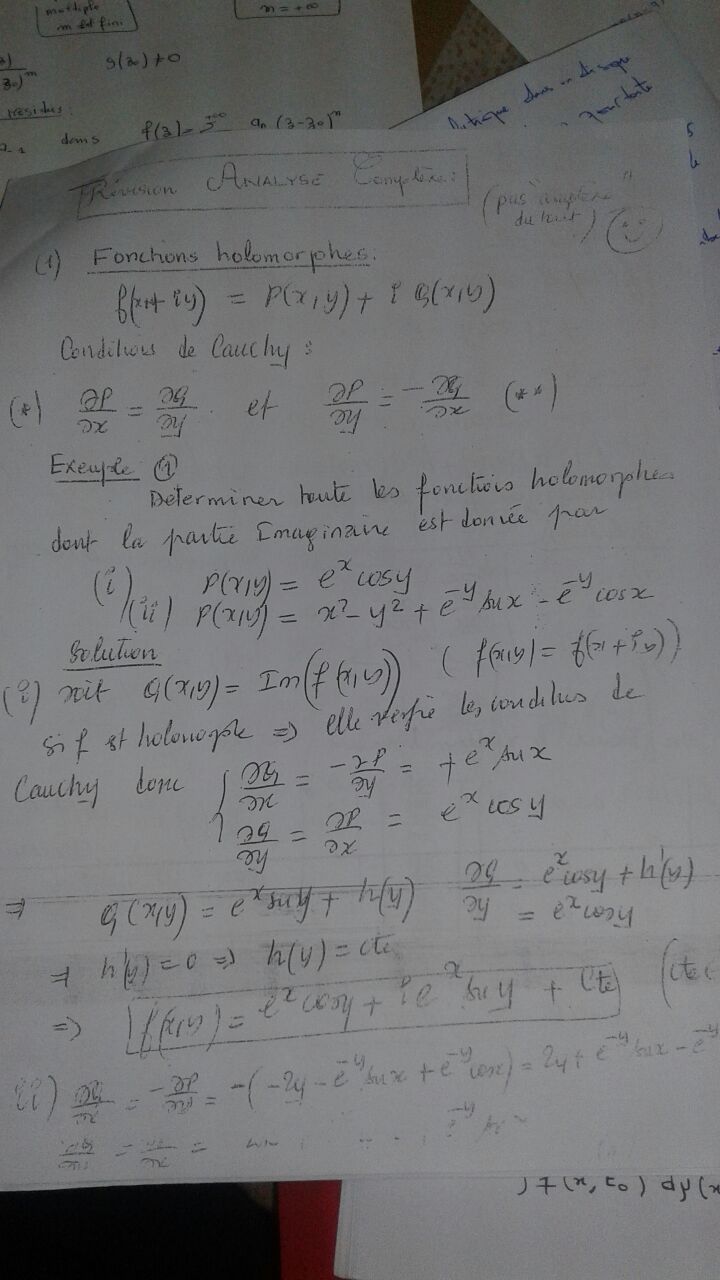 multiple
m est fini
m = +∞
g(z0) ≠ 0
résidus :
dans f(z) = an (z-z0)^n
Révision ANALYSE Complexe :
(1) Fonctions holomorphes :
f(x+iy) = P(x,y) + i Q(x,y)
Conditions de Cauchy :
(*) ∂P/∂x = ∂Q/∂y et ∂P/∂y = -∂Q/∂x (**)
Exemple ①
Déterminer toute les fonctions holomorphes
dont la partie Imaginaire est donnée par
(i) P(x,y) = e^x cosy
(ii) P(x,y) = x² - y² + e^-y sinx - e^-y cosx
Solution
(i) soit Q(x,y) = Im(f(x,y)) (f(x,y) = f(x+iy))
si f est holomophe => elle verifie les conditions de
Cauchy donc { ∂Q/∂x = -∂P/∂y = + e^x sin x
∂Q/∂y = ∂P/∂x = e^x cos y
=> Q(x,y) = e^x siny + h(y) ∂Q/∂y = e^x cosy + h'(y)
= e^x cosy
=> h'(y) = 0 => h(y) = cte
=> f(x,y) = e^x cosy + i e^x siny + cte
ii) ∂Q/∂x = -∂P/∂y = -(-2y - e^-y sinx + e^-y cosx) = 2y + e^-y sinx - e^-y